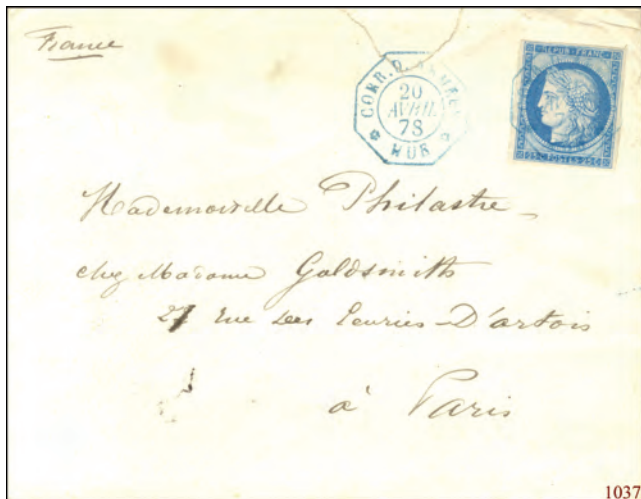 France
CORR. D. ARMEES
20
AVRIL
78
HUE
REPUB. FRANC.
25 C POSTES 25 C
Mademoiselle Philastre
chez Madame Goldsmith
27 rue des Ecuries-D'artois
à Paris
1037